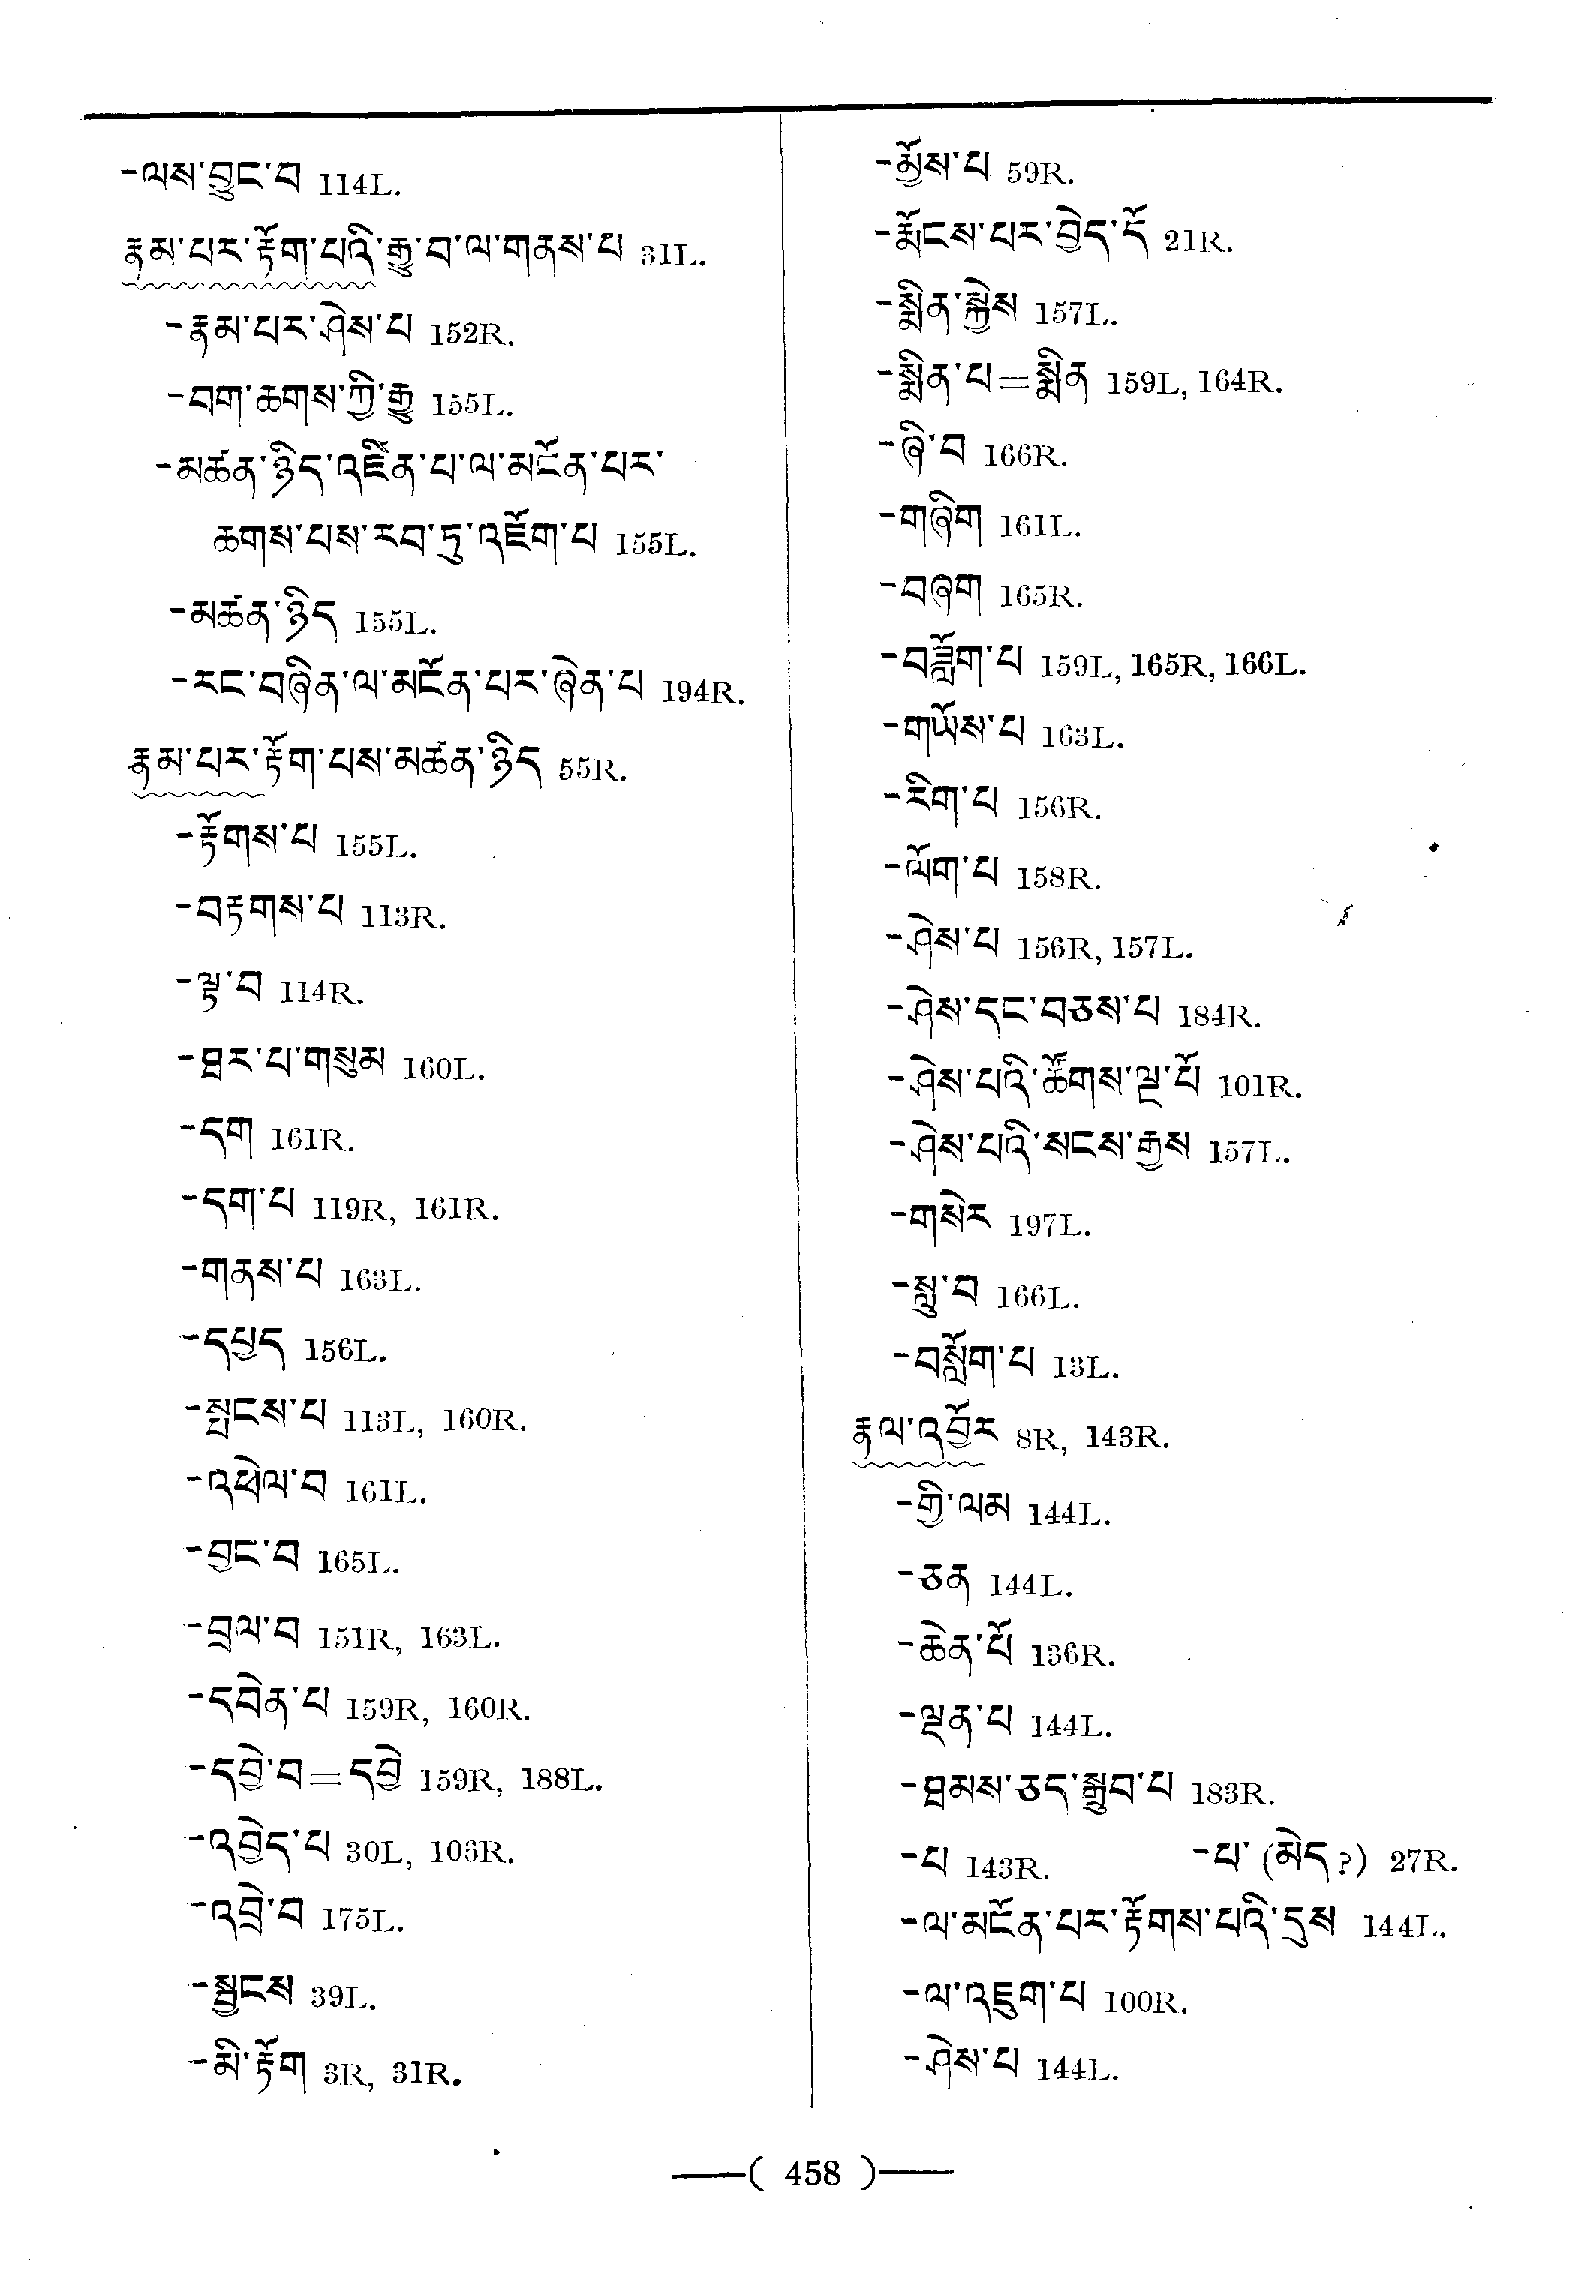 -ལས་བྱུང་བ 114L.
རྣམ་པར་རྟོག་པའི་རྒྱུ་བ་ལ་གནས་པ 31L.
-རྣམ་པར་ཤེས་པ 152R.
-བག་ཆགས་ཀྱི་རྒྱུ 155L.
-མཚན་ཉིད་འཛིན་པ་ལ་མངོན་པར་
ཆགས་པས་རབ་ཏུ་འཇོག་པ 155L.
-མཚན་ཉིད 155L.
-རང་བཞིན་ལ་མངོན་པར་ཞེན་པ 194R.
རྣམ་པར་རྟོག་པས་མཚན་ཉིད 55R.
-རྟོགས་པ 155L.
-བརྟགས་པ 113R.
-ལྟ་བ 114R.
-ཐར་པ་གསུམ 160L.
-དག 161R.
-དག་པ 119R, 161R.
-གནས་པ 163L.
-དཔྱད 156L.
-སྤངས་པ 113L, 160R.
-འཕེལ་བ 161L.
-བྱང་བ 165L.
-བྲལ་བ 151R, 163L.
-དབེན་པ 159R, 160R.
-དབྱེ་བ=དབྱེ 159R, 188L.
-འབྱེད་པ 30L, 106R.
-འབྲེ་བ 175L.
-སྦྱངས 39L.
-མི་རྟོག 3R, 31R.
-མྱོས་པ 59R.
-རྨོངས་པར་བྱེད་དོ 21R.
-སྨིན་སྐྱེས 157L.
-སྨིན་པ=སྨིན 159L, 164R.
-ཞི་བ 166R.
-གཞིག 161L.
-བཞག 165R.
-བཟློག་པ 159L, 165R, 166L.
-གཡོས་པ 163L.
-རིག་པ 156R.
-ལོག་པ 158R.
-ཤེས་པ 156R, 157L.
-ཤེས་དང་བཅས་པ 184R.
-ཤེས་པའི་ཚོགས་ལྔ་པོ 101R.
-ཤེས་པའི་སངས་རྒྱས 157L.
-གསེར 197L.
-སླུ་བ 166L.
-བསློག་པ 13L.
རྣལ་འབྱོར 8R, 143R.
-གྱི་ལམ 144L.
-ཅན 144L.
-ཆེན་པོ 136R.
-ལྡན་པ 144L.
-ཐམས་ཅད་སྒྲུབ་པ 183R.
-པ 143R. -པ་ (མེད?) 27R.
-ལ་མངོན་པར་རྟོགས་པའི་དུས 144L.
-ལ་འཇུག་པ 100R.
-ཤེས་པ 144L.
—( 458 )—